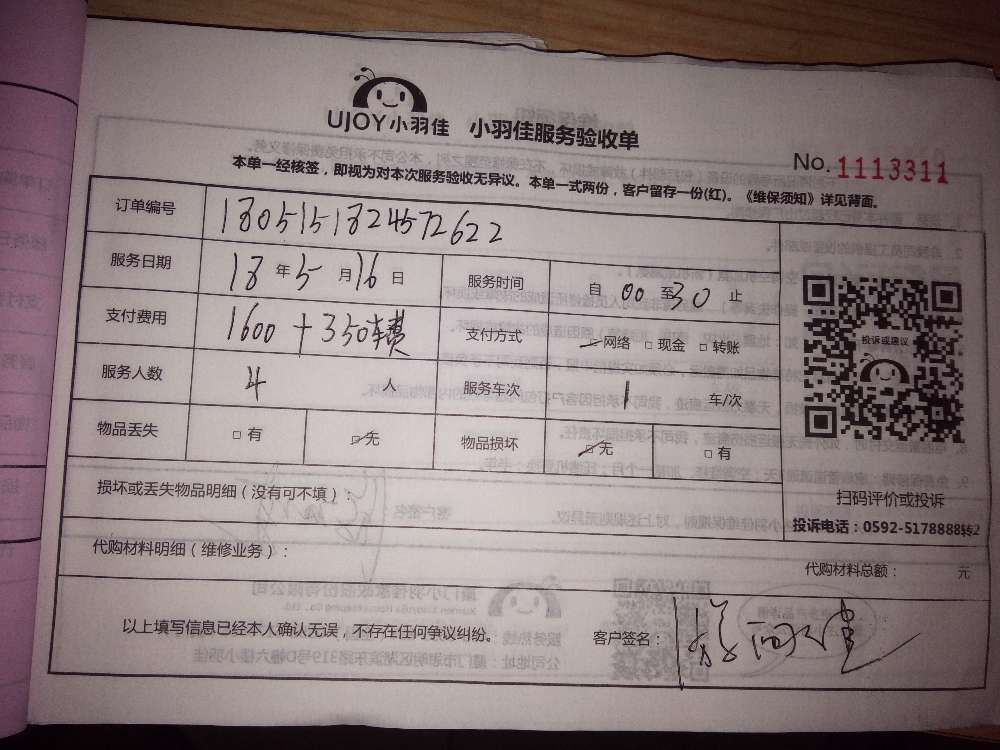 UJOY小羽佳 小羽佳服务验收单
No. 1113311
本单一经核签，即视为对本次服务验收无异议。本单一式两份，客户留存一份(红)。《维保须知》详见背面。
订单编号 1805151824572622
服务日期 18 年 5 月 16 日 服务时间 自 00 至 30 止
支付费用 1600 + 350车费 支付方式 网络 □ 现金 □ 转账
服务人数 4 人 服务车次 1 车/次
物品丢失 □ 有 □ 无 物品损坏 □ 无 □ 有
投诉或建议
扫码评价或投诉
投诉电话：0592-5178888转2
损坏或丢失物品明细（没有可不填）：
代购材料明细（维修业务）： 代购材料总额： 元
以上填写信息已经本人确认无误，不存在任何争议纠纷。 客户签名：